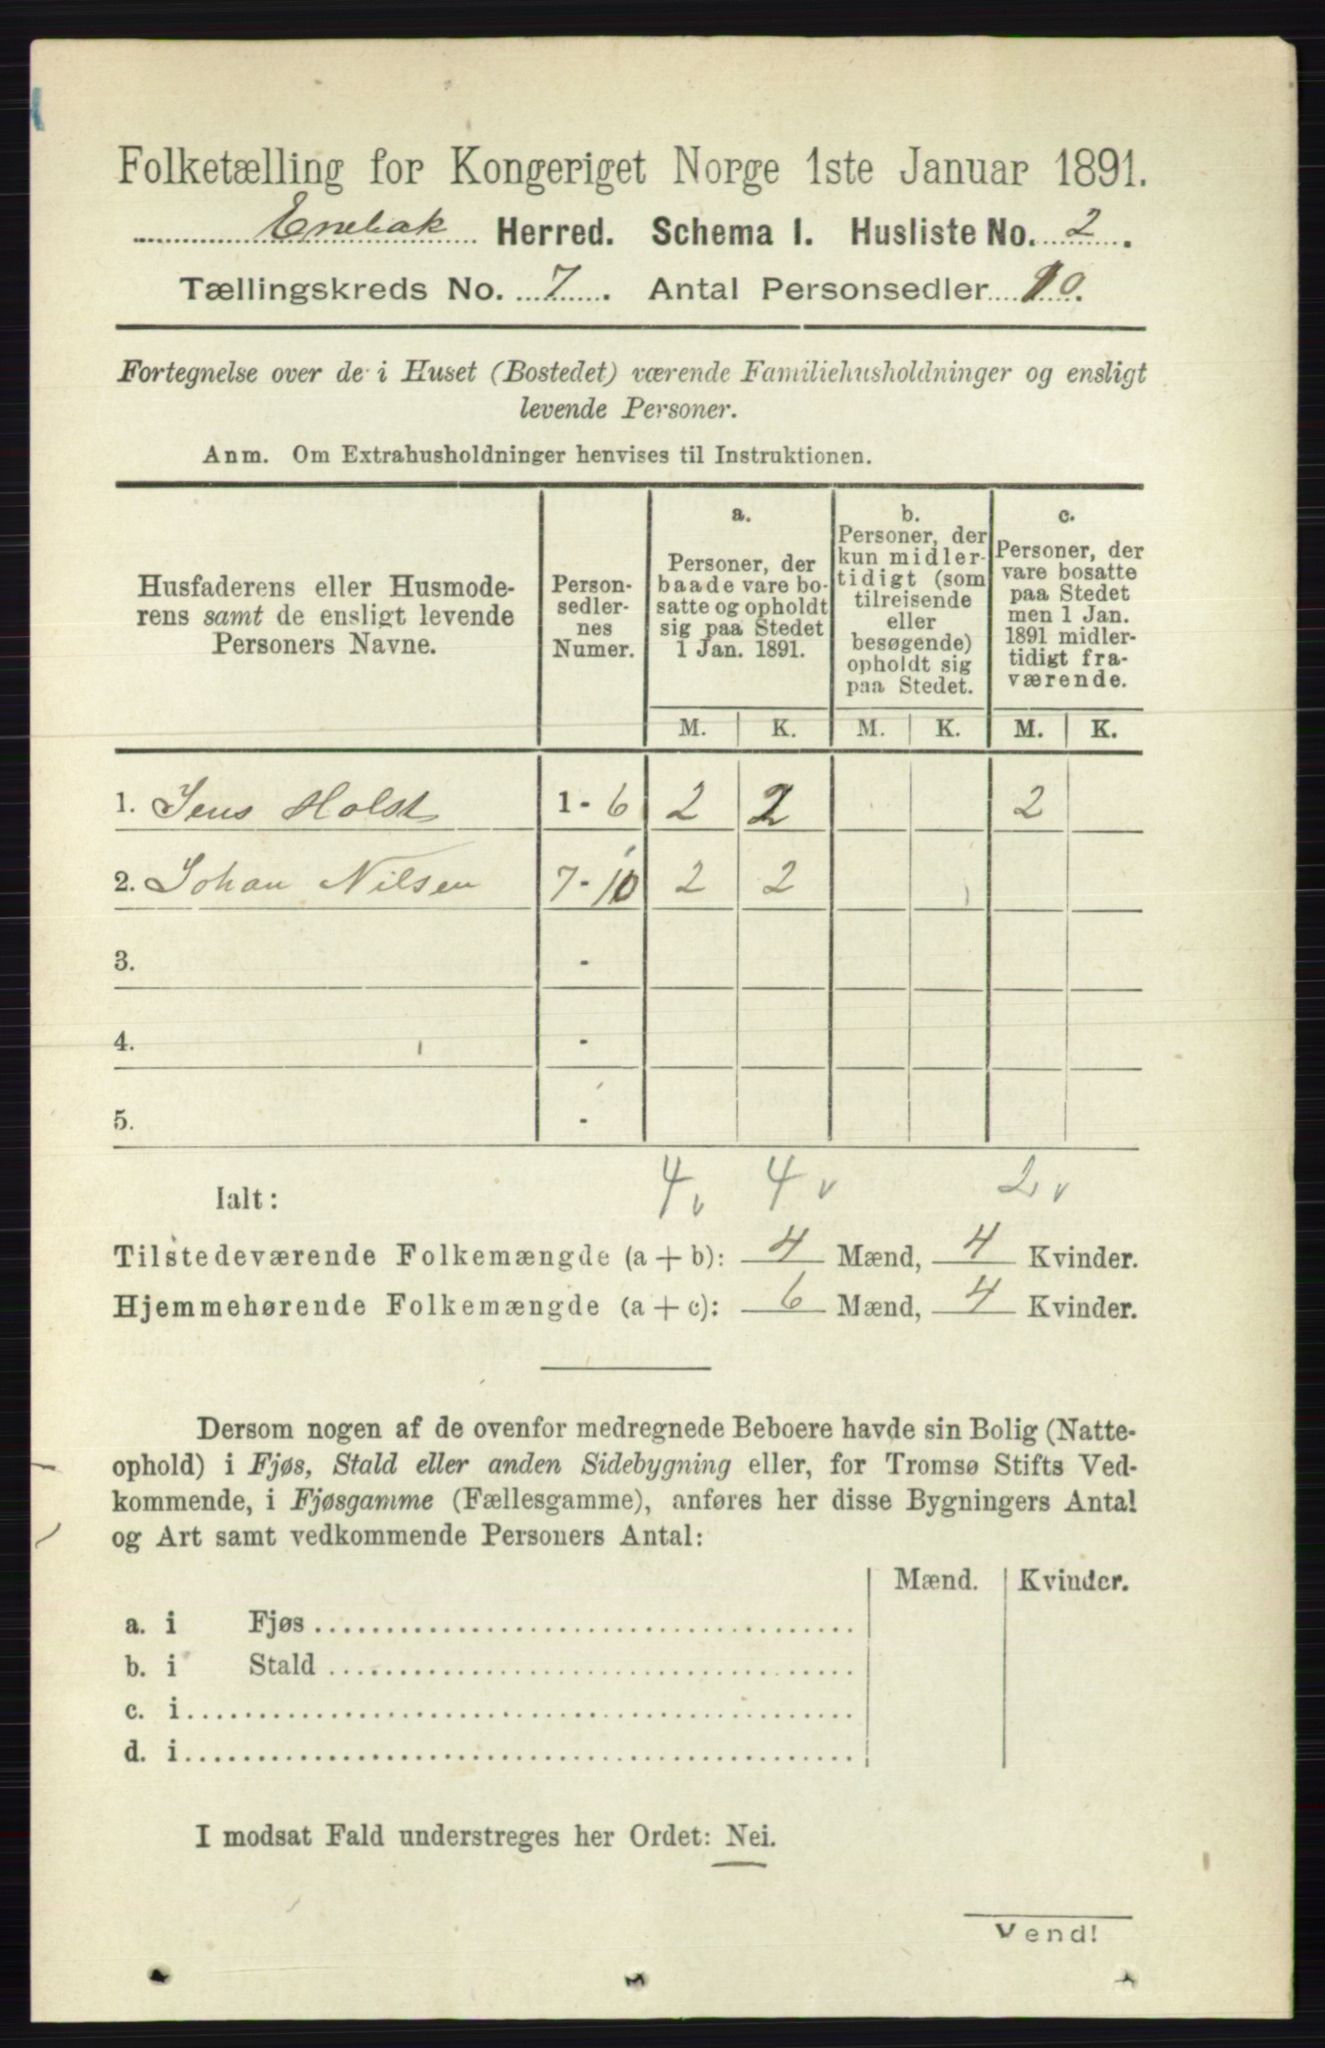 Folketælling for Kongeriget Norge 1ste Januar 1891.
Enebak Herred. Schema I. Husliste No. 2.
Tællingskreds No. 7. Antal Personsedler 10.
Fortegnelse over de i Huset (Bostedet) værende Familiehusholdninger og ensligt
levende Personer.
Anm. Om Extrahusholdninger henvises til Instruktionen.
Husfaderens eller Husmode-
rens samt de ensligt levende
Personers Navne.
Person-
sedler-
nes
Numer.
a.
Personer, der
baade vare bo-
satte og opholdt
sig paa Stedet
1 Jan. 1891.
b.
Personer, der
kun midler-
tidigt (som
tilreisende
eller
besøgende)
opholdt sig
paa Stedet.
c.
Personer, der
vare bosatte
paa Stedet
men 1 Jan.
1891 midler-
tidigt fra-
værende.
M. K. M. K. M. K.
1. Jens Holst 1 - 6 2 2 2
2. Johan Nilsen 7 - 10 2 2
3. -
4. -
5. -
Ialt: 4 v 4 v 2 v
Tilstedeværende Folkemængde (a + b): 4 Mænd, 4 Kvinder.
Hjemmehørende Folkemængde (a + c): 6 Mænd, 4 Kvinder.
Dersom nogen af de ovenfor medregnede Beboere havde sin Bolig (Natte-
ophold) i Fjøs, Stald eller anden Sidebygning eller, for Tromsø Stifts Ved-
kommende, i Fjøsgamme (Fællesgamme), anføres her disse Bygningers Antal
og Art samt vedkommende Personers Antal:
Mænd. Kvinder.
a. i Fjøs
b. i Stald
c. i
d. i
I modsat Fald understreges her Ordet: Nei.
Vend!